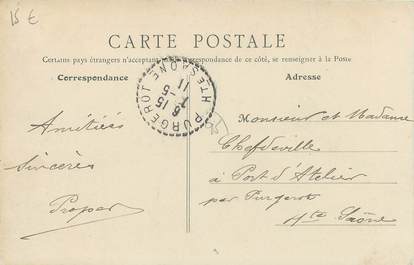 15 €
CARTE POSTALE
Certains pays étrangers n'acceptant pas la correspondance de ce côté, se renseigner à la Poste
Correspondance
Adresse
PURGEROT
HTE SAÔNE
15
5
11
Amitiés
sincères
Monsieur et Madame
Chefdeville
à Port d'Atelier
par Purgerot
Hte Saône